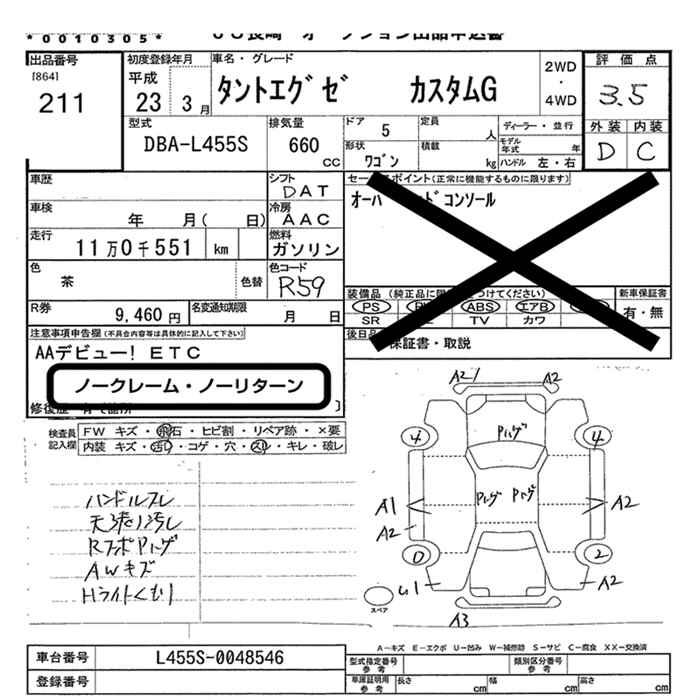 *0010305*
出品番号
[864]
211
初度登録年月
平成
23 3月
車名・グレード
タントエグゼ カスタムG
2WD
・
4WD
評価点
3.5
型式
DBA-L455S
排気量
660
cc
ドア
5
定員
人
ディーラー・並行
モデル年式
年
外装 内装
D C
形状
ワゴン
積載
kg
ハンドル 左・右
車歴
シフト
DAT
セールスポイント(正常に機能するものに限ります)
オーバ ドコンソール
車検
年 月( 日)
冷房
AAC
走行
11万0千551 km
燃料
ガソリン
色
茶
色替
色コード
R59
装備品
新車保証書
有・無
PS ABS エアB
SR TV カワ
R券
9,460円
名変通知期限
月 日
保証書・取説
注意事項申告欄(不具合内容等は具体的に記入して下さい)
AAデビュー! ETC
ノークレーム・ノーリターン
検査員
記入欄
FW キズ・飛石・ヒビ割・リペア跡・×要
内装 キズ・汚れ・コゲ・穴・スレ・キレ・破レ
ハンドルスレ
天張汚し
RフロアPハゲ
AWキズ
Hライトくもり
A21 A2
Pハゲ
4 4
Pハゲ Pハゲ
A1 A2
A2
D 2
U1 A2
スペア
A3
A-キズ E-エクボ U-凹み W-補修跡 S-サビ C-腐食 XX-交換済
車台番号
L455S-0048546
型式指定番号
参考
類別区分番号
参考
登録番号
車庫証明用
参考
長さ
cm
幅
cm
高さ
cm